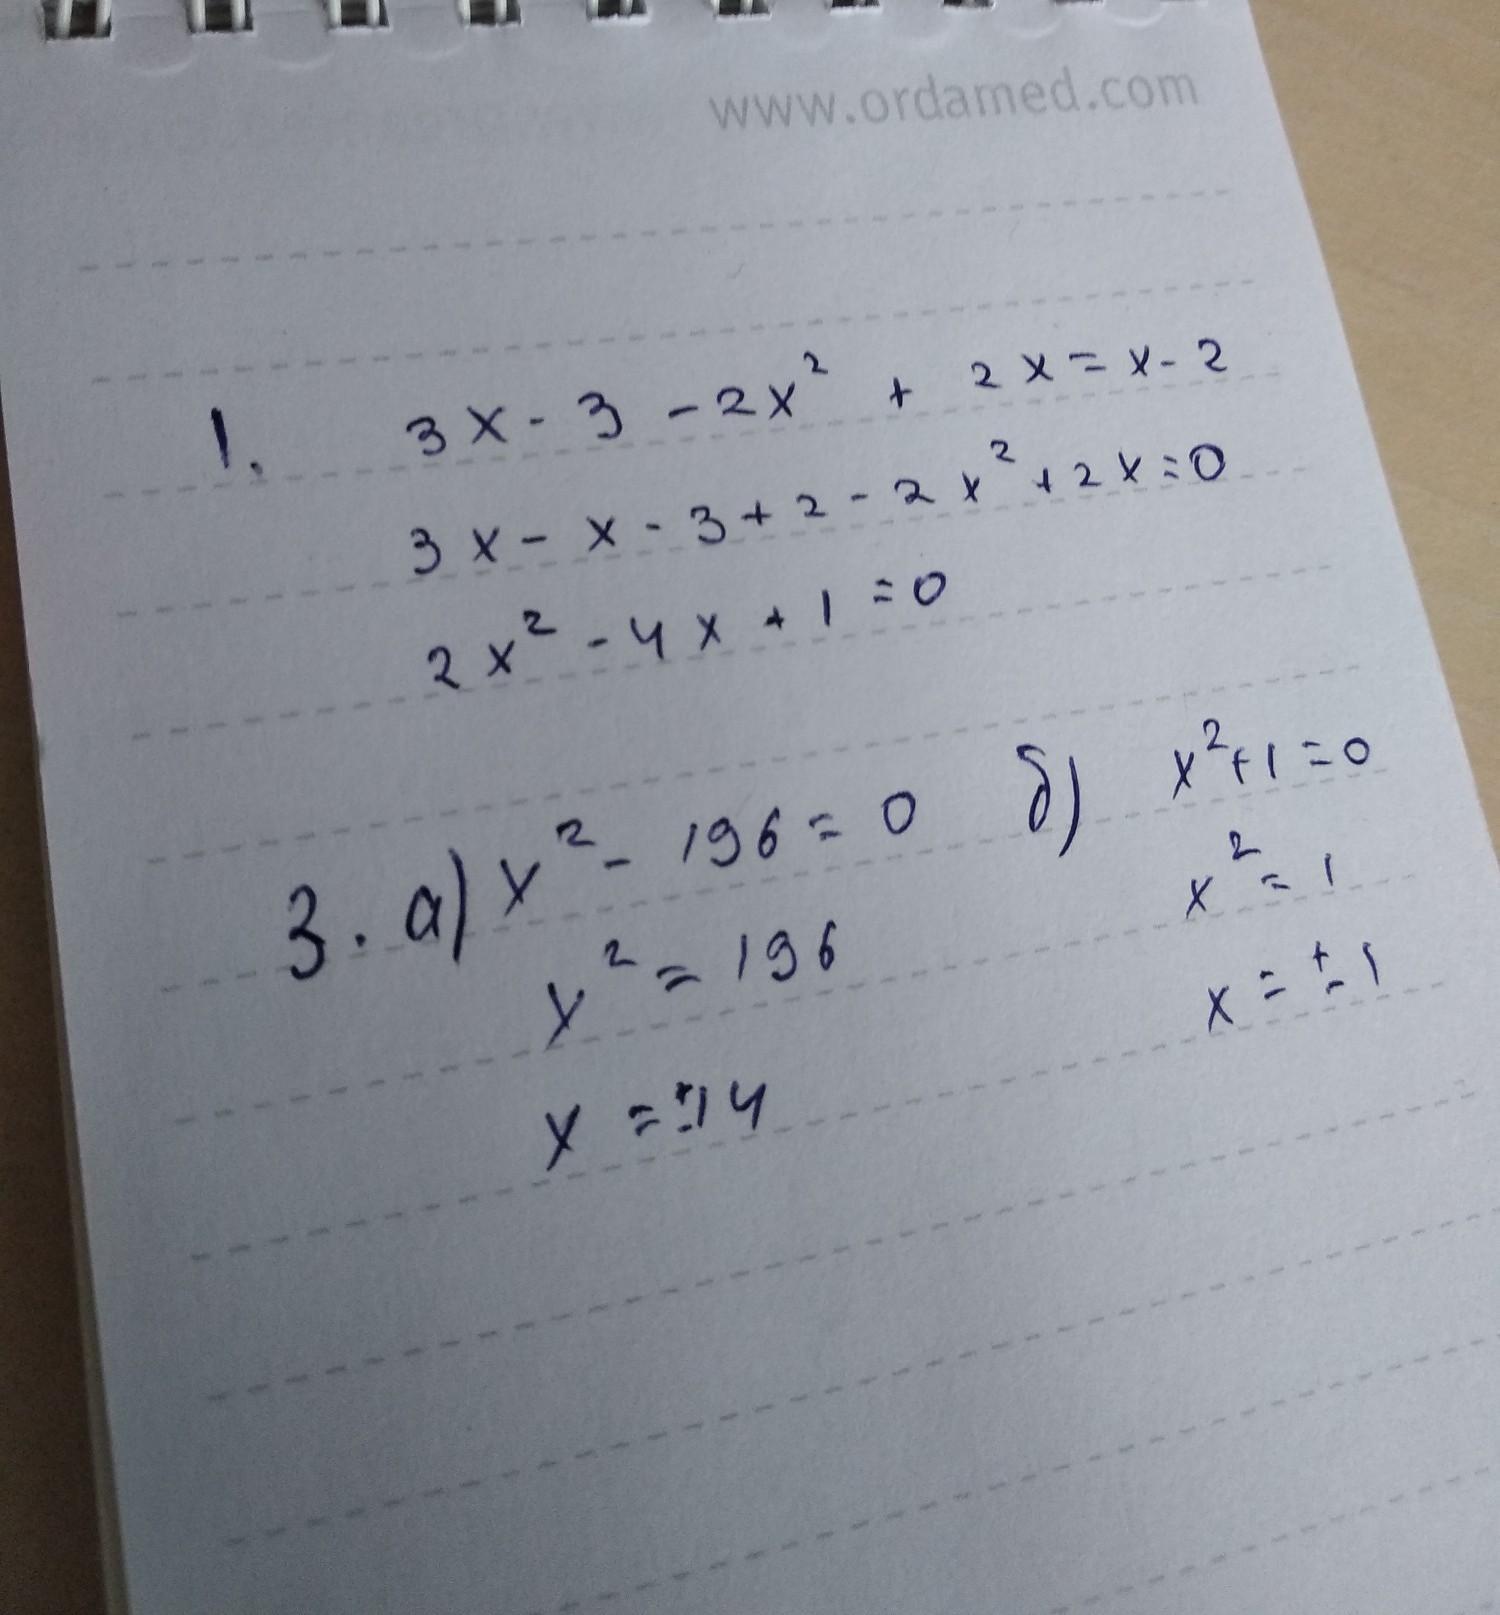 www.ordamed.com
1. 3x - 3 - 2x² + 2x = x - 2
3x - x - 3 + 2 - 2x² + 2x = 0
2x² - 4x + 1 = 0
3. а) x² - 196 = 0
x² = 196
x = ±14
б) x² + 1 = 0
x² = 1
x = ±1